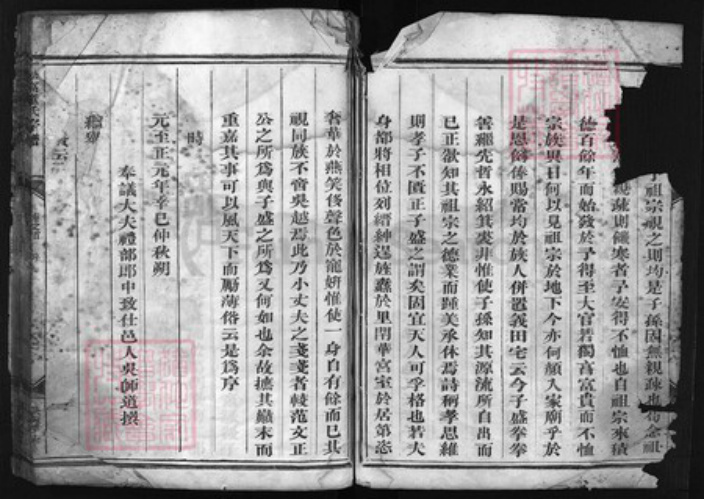 子祖宗視之則均是子孫固無親疎也苟念祖
親疎則饑寒者予安得不恤也自祖宗來積
德百餘年而始發於予得至大官若獨享富貴而不恤
宗族異日何以見祖宗於地下今亦何顏入家廟乎於
是恩例俸賜常均於族人併置義田宅云今子盛拳拳
善繼先哲永紹箕裘非惟使子孫知其源流所自出而
已正欲知其祖宗之德業而踵美承休焉詩稱孝思維
則孝子不匱正子盛之謂矣固宜天人可孚格也若夫
身都將相位列縉紳過旌纛於里閈華宮室於居第恣
奢華於燕笑侈聲色於寵妍惟使一身自有餘而已其
視同族不啻吳越焉此乃小丈夫之戔戔者較范文正
公之所為與子盛之所為又何如也余故摭其巔末而
重嘉其事可以風天下而勵薄俗云是為序
時
元至正元年辛巳仲秋朔
奉議大夫禮部郎中致仕邑人吳師道撰